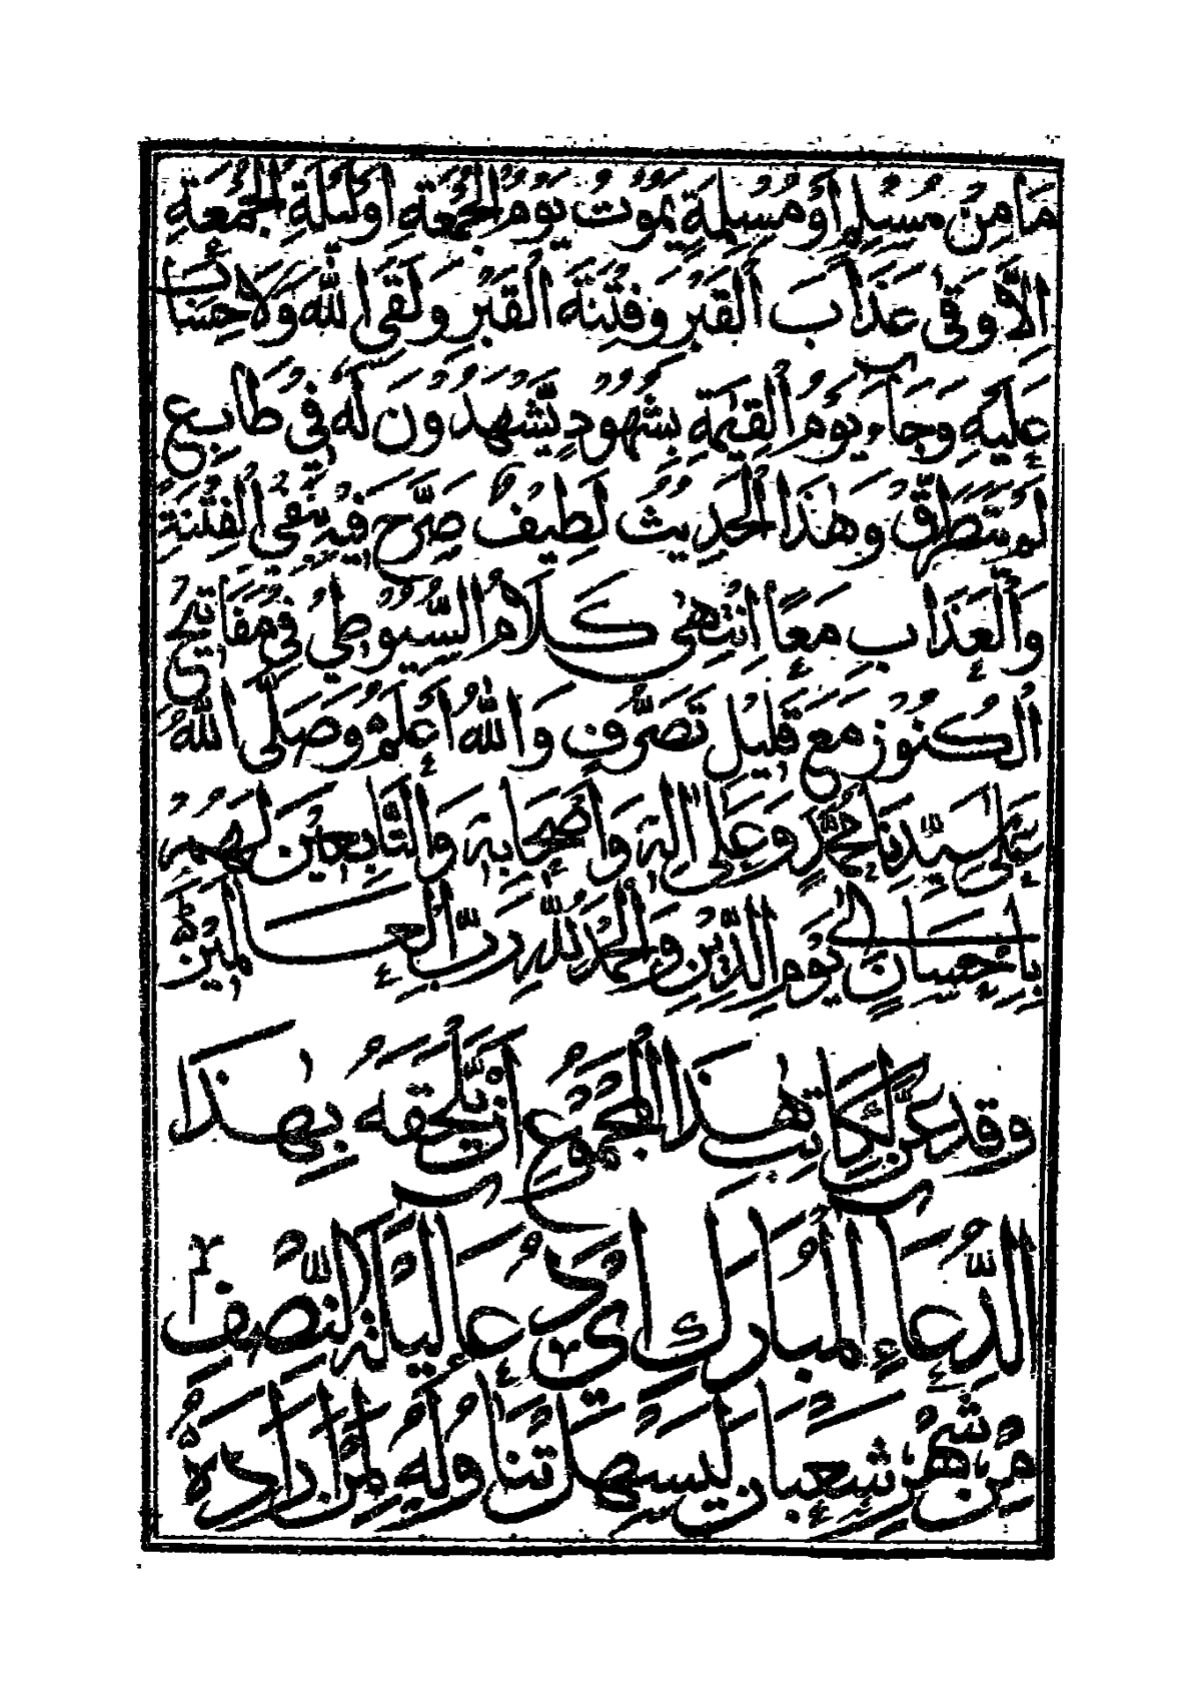 مَا مِنْ مُسْلِمٍ أَوْ مُسْلِمَةٍ يَمُوتُ يَوْمَ الْجُمُعَةِ أَوْ لَيْلَةَ الْجُمُعَةِ
إِلَّا وُقِيَ عَذَابَ الْقَبْرِ وَفِتْنَةَ الْقَبْرِ وَلَقِيَ اللهَ وَلَا حِسَابَ
عَلَيْهِ وَجَاءَ يَوْمَ الْقِيٰمَةِ بِشُهُودٍ يَّشْهَدُونَ لَهُ فِي طَابِعٍ
وَهٰذَا الْحَدِيثُ لَطِيفٌ صَرَّحَ فِيهِ بِنَفْيِ الْفِتْنَةِ
وَالْعَذَابِ مَعًا انْتَهٰى كَلَامُ السُّيُوطِي فِي مَفَاتِيحِ
الْكُنُوزِ مَعَ قَلِيلِ تَصَرُّفٍ وَاللهُ أَعْلَمُ وَصَلَّى اللهُ
عَلٰى سَيِّدِنَا مُحَمَّدٍ وَعَلٰى اٰلِهِ وَأَصْحَابِهِ وَالتَّابِعِينَ لَهُمْ
بِإِحْسَانٍ إِلٰى يَوْمِ الدِّينِ وَالْحَمْدُ لِلّٰهِ رَبِّ الْعَالَمِينَ
وَقَدْ عَنَّ لِكَاتِبِ هٰذَا الْمَجْمُوعِ أَنْ يُّلْحِقَهُ بِهٰذَا
الدُّعَاءِ الْمُبَارَكِ أَيْ دُعَاءِ لَيْلَةِ النِّصْفِ
مِنْ شَهْرِ شَعْبَانَ لِيَسْهُلَ تَنَاوُلُهُ لِمَنْ أَرَادَهُ